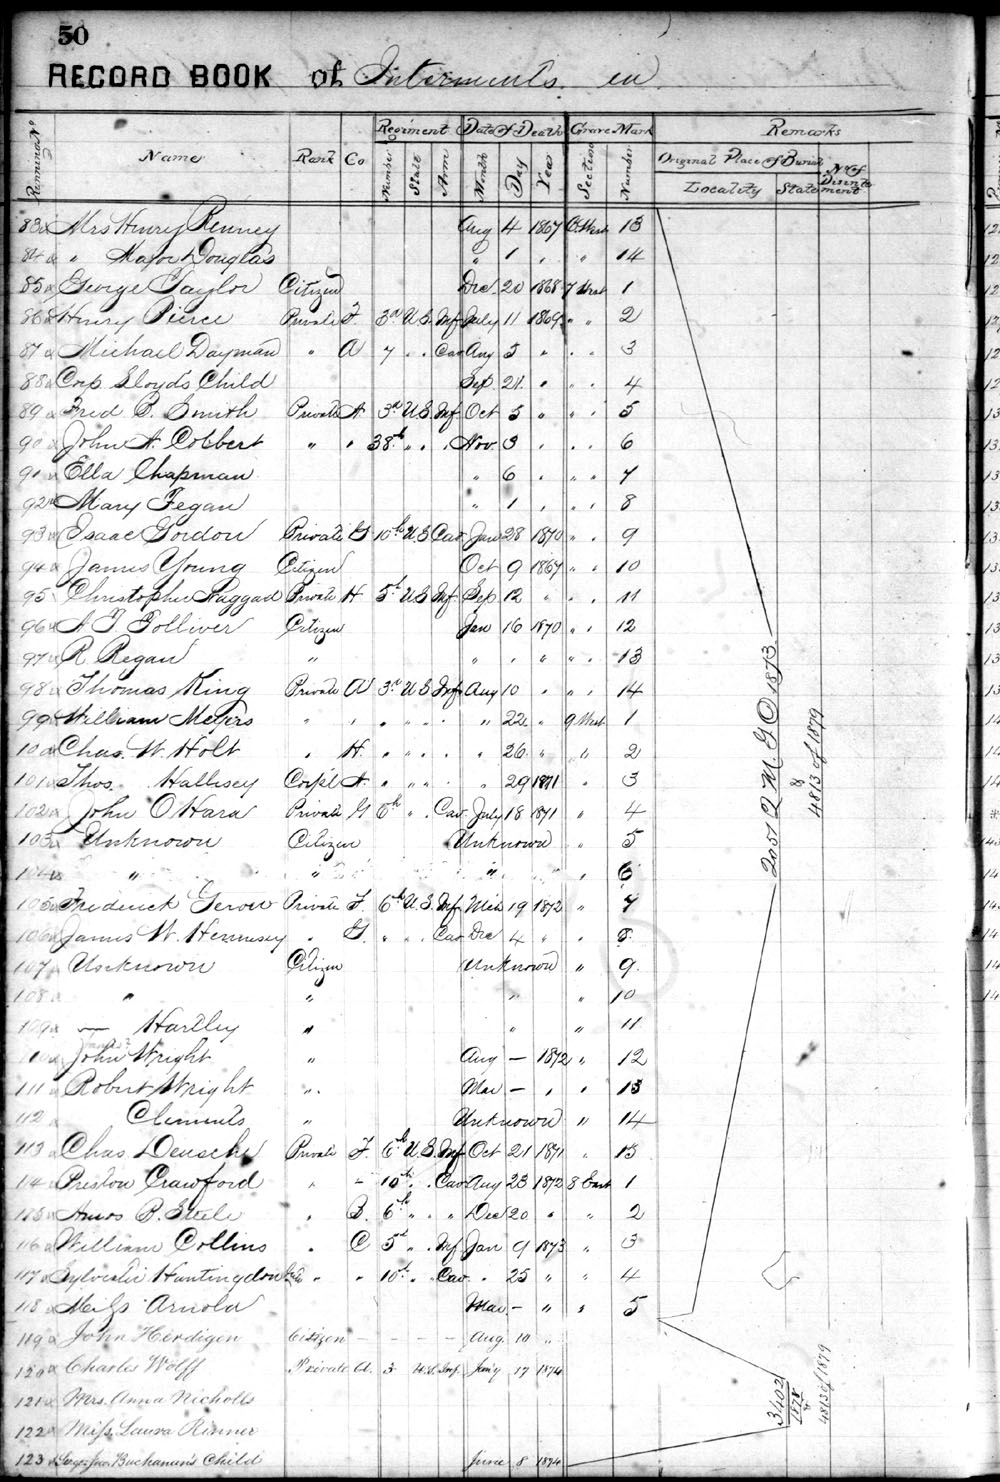 50
RECORD BOOK of Interments in
Running No Name Rank Co Regiment Number State Arm Date of Death Month Day Year Grave Mark Section Number Remarks Original Place of Burial Locality State No of Disinterment
83 Mrs Henry Kenney Aug 4 1867 West 13
84 " Major Douglas " 1 " " 14
85 George Taylor Citizen Dec 20 1868 7 West 1
86 Henry Pierce Private F 3rd U S Inf July 11 1869 " " 2
87 Michael Dayman " A 7 " . Cav Aug 5 " . . 3
88 Corp Lloyds Child Sep 21 " " . 4
89 Fred B. Smith Private A 3rd U S Inf Oct 5 " " . 5
90 John A. Cobbert " " 38th " . . Nov. 3 . . . 6
91 Ella Chapman " 6 . " . 7
92 Mary Fegan " 1 . . . 8
93 Isaac Gordon Private G 10th U S Cav Jan 28 1870 " . 9
94 James Young Citizen Oct 9 1867 " . 10
95 Christopher Haggad Private H 5th U S Inf Sep 12 " . . 11
96 A J Tolliver Citizen Jan 16 1870 " . 12
97 R Regan " " . " " . 13
98 Thomas King Private A 3rd U S Inf Aug 10 . " . 14
99 William Meyers " " . " . . " 22 " 9 West 1
100 Chas. W. Holt . H. " " . . " 26 " " 2
101 Thos. Hallisey Corpl A. " " " . " 29 1871 " 3
102 John O Hara Private G 6th " . Cav July 18 1871 " 4
103 Unknown Citizen Unknown " 5
104 " " " . 6
105 Frederick Private F 6th U. S. Inf Mch 19 1872 " 7
106 James W. Hennesey . G. " . . Cav Dec 4 " . 8.
107 Unknown Citizen Unknown " 9.
108 " " " " 10
109 — Hartley " " " 11
110 John Wright " Aug — 1872 " 12
111 Robert Wright " Mar — . . 13
112 Clements " Unknown " 14
113 Chas Private F. 6th U S Inf Oct 21 1871 . 15
114 Preston Crawford " - 10th . . Cav Aug 23 1872 8 East 1
115 Amos B. Steele . B. 6th " " " Dec 20 " " 2
116 William Collins . C 5th " . Inf Jan 9 1873 " 3
117 Sylvester Huntingdon " " 10th . " Cav . . 25 " " 4
118 Meigs Arnold Mar — " " 5
119 John Herdigen Citizen — — — — Aug. 10 "
120 Charles Wolff Private A. 3 U.S. Inf. Jan'y 17 1874
121 Mrs. Anna Nicholls
122 Miss Laura Rinner
123 Buchanan's Child June 8 1874
2051 Q M G O 1873
&
4813 of 1879
3402
1874
&
4813 of 1879